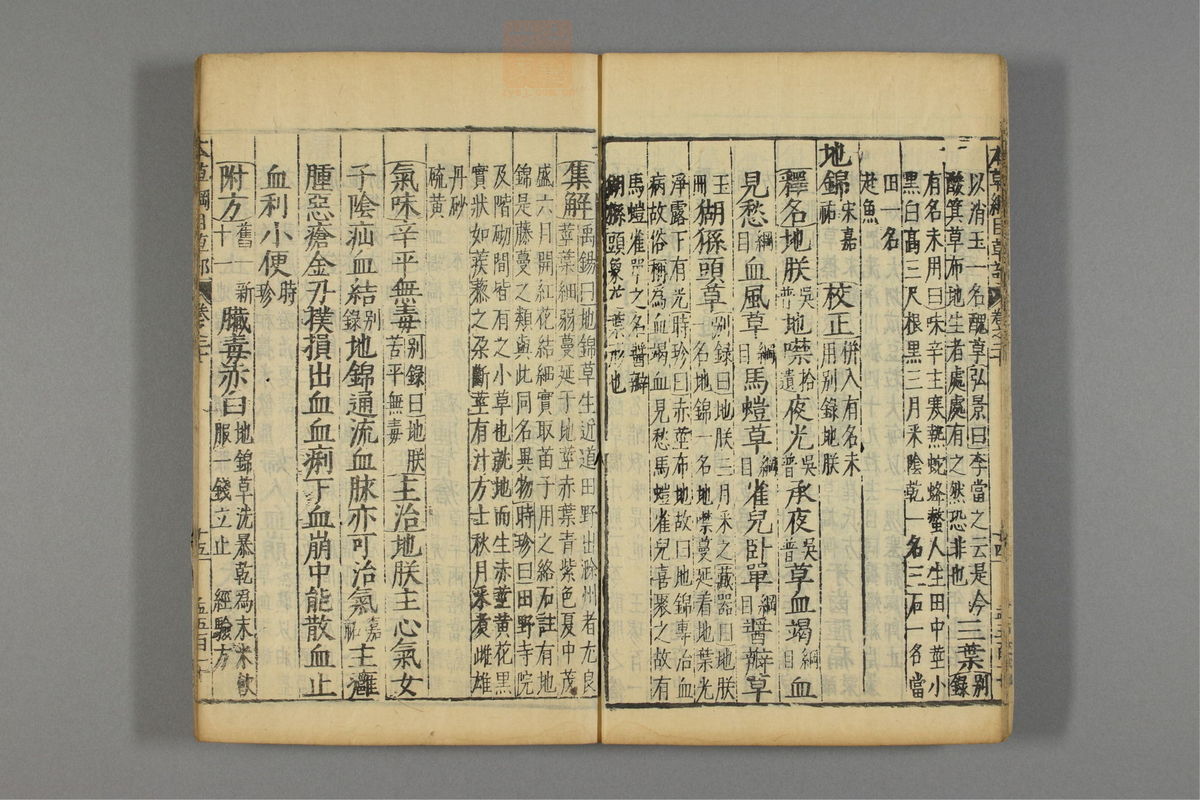 以消玉一名醜草弘景曰李當之云是今三葉別
酸箕草布地生者處處有之然恐非也
錄
有名未用曰味辛主寒熱蛇蜂螫人生田中莖小
黑白高三尺根黑三月采陰乾一名三石一名當
田一名
赴魚
地錦宋嘉祐
校正併入有名未用別錄地朕
釋名地朕吳普地噤拾遺夜光吳普承夜吳普草血竭綱目血
見愁綱目血風草綱目馬螘草綱目雀兒臥單綱目醬瓣草
玉冊猢猻頭草別錄曰地朕三月采之藏器曰地朕
一名地錦一名地噤蔓延着地葉光
淨露下有光時珍曰赤莖布地故曰地錦專治血
病故俗稱為血竭血見愁馬螘雀兒喜聚之故有
馬螘雀單之名醬瓣
猢猻頭象花葉形也
集解禹錫曰地錦草生近道田野出滁州者尤良
莖葉細弱蔓延于地莖赤葉青紫色夏中茂
盛六月開紅花結細實取苗子用之絡石註有地
錦是藤蔓之類與此同名異物時珍曰田野寺院
及階砌間皆有之小草也就地而生赤莖黃花黑
實狀如蒺藜之朶斷莖有汁方士秋月采煑雌雄
丹砂
硫黃
氣味辛平無毒別錄曰地朕
苦平無毒
主治地朕主心氣女
子陰疝血結別錄地錦通流血脉亦可治氣嘉祐主癰
腫惡瘡金刃撲損出血血痢下血崩中能散血止
血利小便時珍
附方舊一新十一
臟毒赤白地錦草洗暴乾為末米飲
服一錢立止經驗方